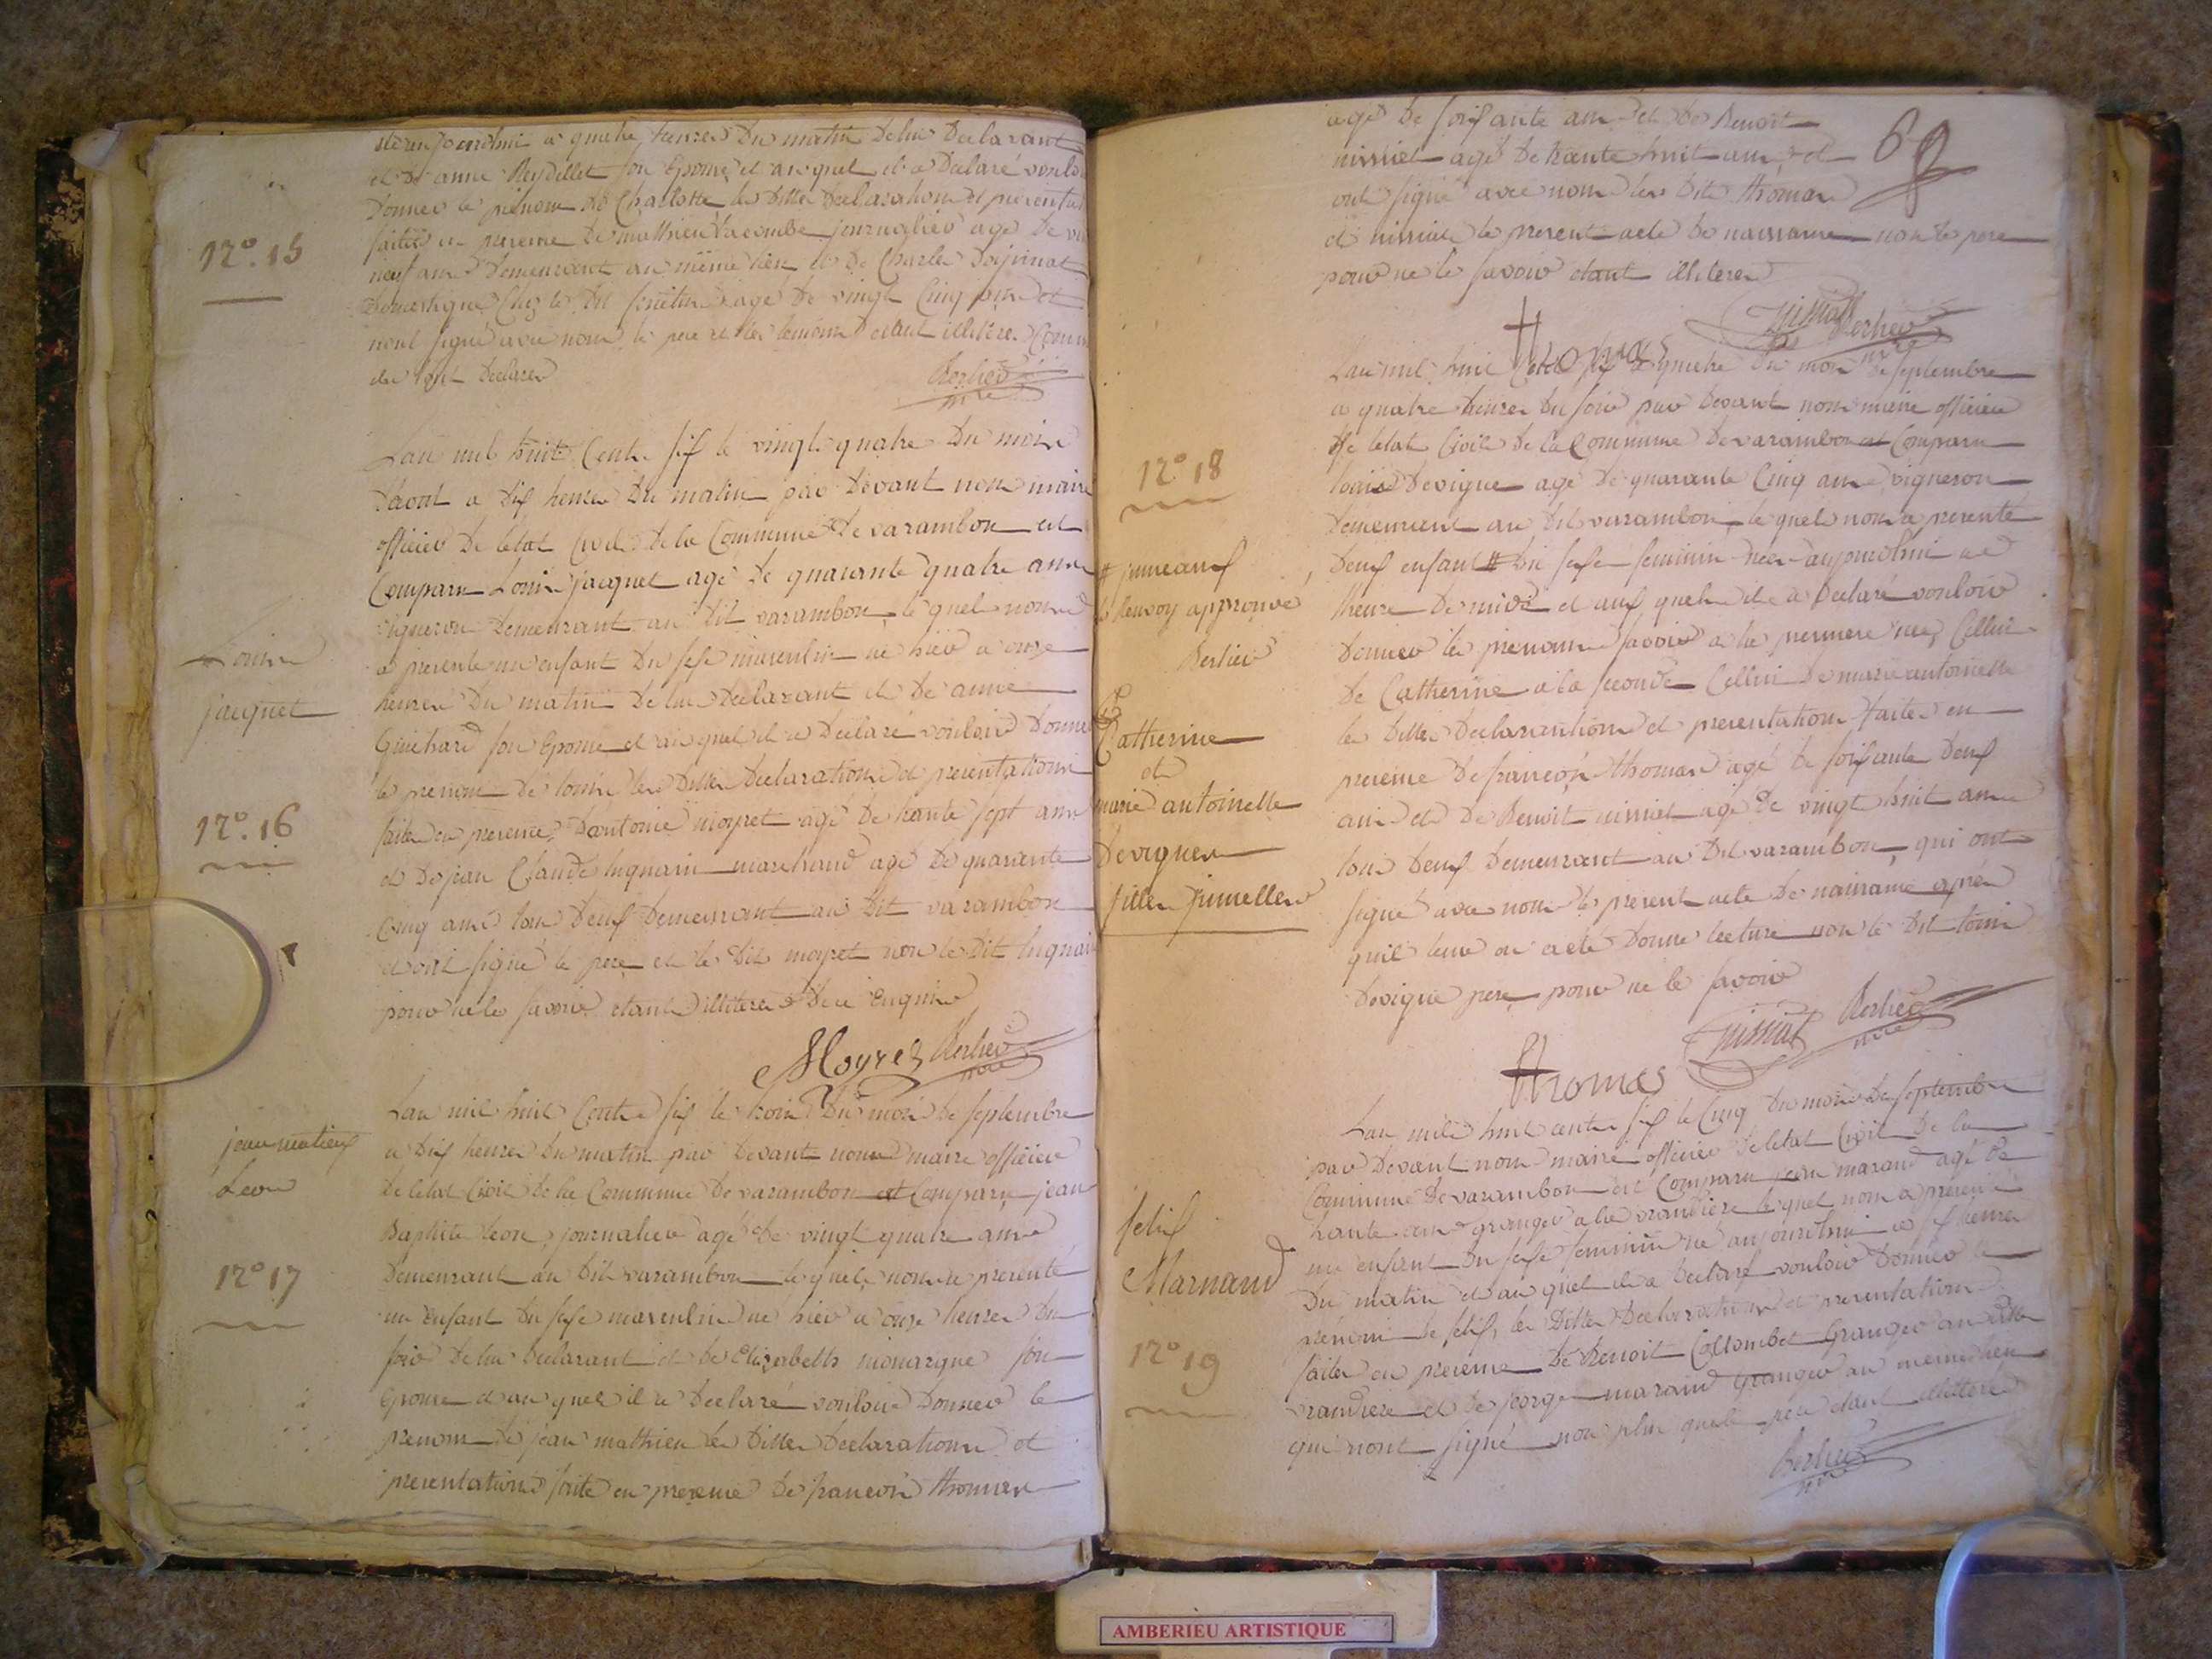 née aujourdhui a quatre heures du matin de lui declarant
et de anne Reydellet son Epouse et au quel il a declaré vouloir
donner le prénom de Charlotte les dittes declarations et presentations
faittes en presence de mathieu Lacombe journaglier agé de
neuf ans demeurant au même lieu et de Charles
domestique chez le dit agé de vingt cinq ans et
nont signé avec nous le pere et les temoins etant illiterés Comme
ils lont declarés
Berlier
mre
N°. 15
Lan mil huit Cents six le vingt quatre du mois
daout a dix heures du matin par devant nous maire
officier de letat Civil de la Commune de varambon est
Comparu Louis jacquet agé de quarante quatre ans
vigneron demeurant au dit varambon, le quel nous
a presenté un enfant du sexe masculin né hier a onze
heures du matin de lui declarant et de anne
Guichard son Epouse et au quel il a declaré vouloir donner
le prenom de louis les dittes declarations et presentations
faites en presence dantoine moyret agé de trante sept ans
et de jean Claude huguain marchand agé de quarante
Cinq ans tous deux demeurant au dit varambon
et ont signé le pere et le dit moyret non le dit huguain
pour ne le savoir etant illiteré de ce Enquis
Moyret Berlier
mre
Louis
jacquet
N°. 16
Lan mil huit Cents six le trois du mois de septembre
a dix heures du matin par devant nous maire officier
de letat Civil de la Commune de varambon est Comparu jean
Baptiste leon, journalier agé de vingt quatre ans
demeurant au dit varambon le quel nous a presenté
un enfant du sexe masculin né hier a onze heures du
soir de lui declarant et de Elizabeth monarque son
Epouse et au quel il a declaré vouloir donner le
prenom de jean mathieu les dittes declarations et
presentations faite en presence de francois thomas
jean matieux
Leon
N° 17
agé de soixante ans et de Benoit
nissiat agé de trante huit ans et
ont signé avec nous les dits thomas
et nissiat le present acte de naissance non le pere
pour ne le savoir etant illiteré
68
thomas
nissiat Berlier
mre
Lan mil huit Cents six le quatre du mois de septembre
a quatre heures du soir par devant nous maire officier
de letat Civil de la Commune de varambon est Comparu
louis devigue agé de quarante Cinq ans vigneron
demeurant au dit varambon, le quel nous a presenté
deux enfant # du sexe feminin nées aujourdhui a
heure de midi et aux quels il a declaré vouloir
donner les prenoms savoir a la premiere née Cellui
de Catherine a la seconde Cellui de marie antoinette
les dittes declarations et presentations faites en
presence de francois thomas agé de soixante deux
ans et de Benoit nissiat agé de vingt huit ans
tous deux demeurant au dit varambon, qui ont
signé avec nous le present acte de naissance après
quil leur en a eté donné lecture non le dit louis
devigue pere pour ne le savoir
nissiat Berlier
mre
thomas
N° 18
# jumeaux
le Renvoy approuvé
Berlier
Catherine
et
marie antoinette
devigue
filles jumelles
Lan mil huit cents six le Cinq du mois de septembre
par devant nous maire officier de letat Civil de la
Commune de varambon est Comparu jean marand agé de
trante ans granger a la vrandiere le quel nous a presenté
un enfant du sexe feminin né aujourdhui a six heures
du matin et au quel il a declaré vouloir donner le
prénom de felix, les dittes declarations et presentations
faites en presence de Benoit Collombet Granger au dit
vrandiere et de jeorge marand Granger au meme lieu
qui nont signé non plus que le pere etant illiterés
Berlier
mre
felix
Marnand
N° 19
AMBERIEU ARTISTIQUE